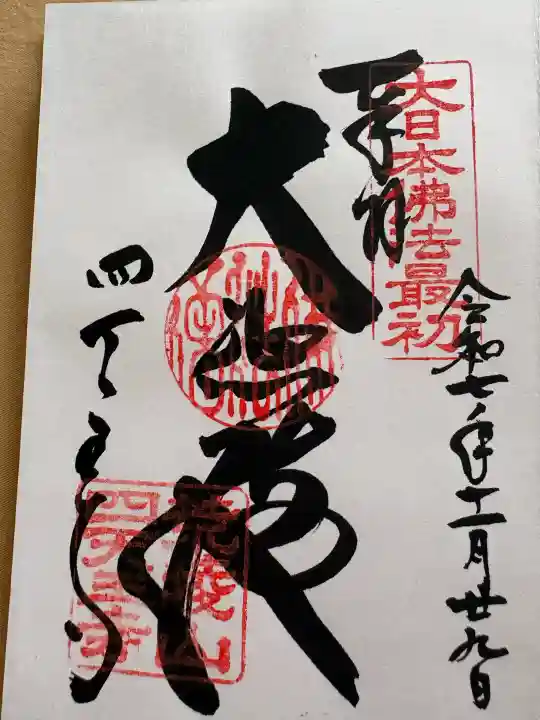 奉拝
大日本佛法最初
令和七年十一月廿九日
大悲殿
四天王寺
荒陵山
四天王寺